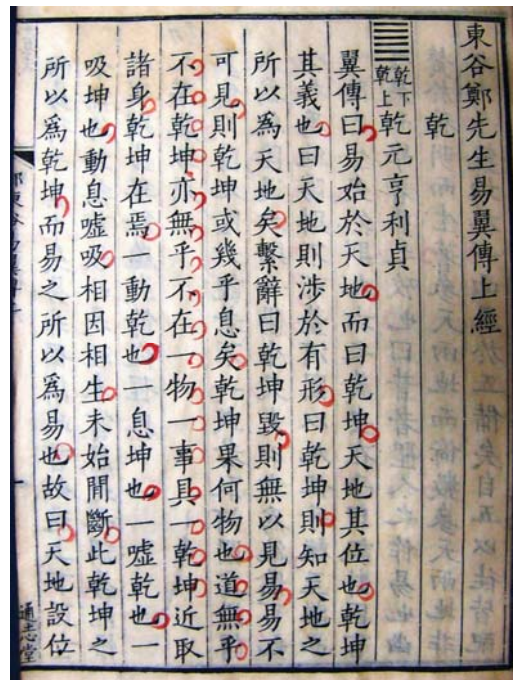 東谷鄭先生易翼傳上經
乾
乾下
乾上
乾元亨利貞
翼傳曰易始於天地而曰乾坤天地其位也乾坤
其義也曰天地則涉於有形曰乾坤則知天地之
所以為天地矣繫辭曰乾坤毀則無以見易易不
可見則乾坤或幾乎息矣乾坤果何物也道無乎
不在乾坤亦無乎不在一物一事具一乾坤近取
諸身乾坤在焉一動乾也一息坤也一噓乾也一
吸坤也動息噓吸相因相生未始間斷此乾坤之
所以為乾坤而易之所以為易也故曰天地設位
通志堂